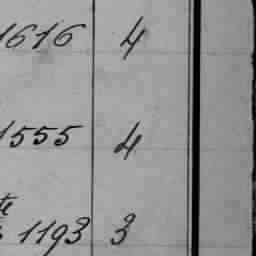 1616 4
1555 4
te
1193 3